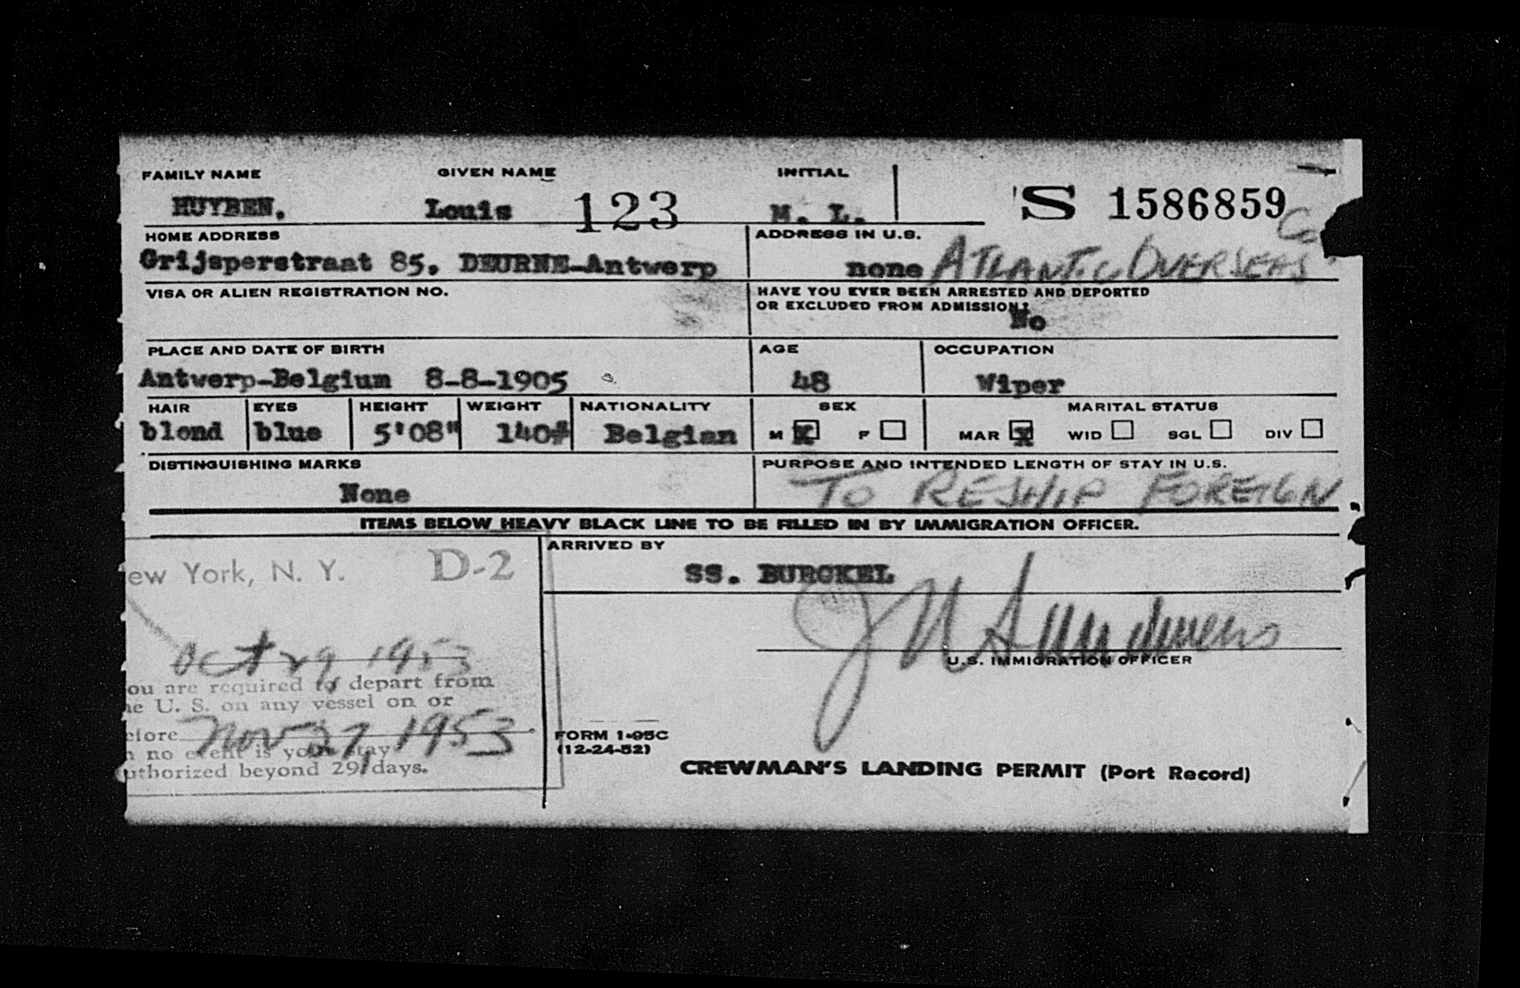 FAMILY NAME GIVEN NAME INITIAL
HUYBEN, Louis 123 M. L. S 1586859
HOME ADDRESS ADDRESS IN U.S.
Grijsperstraat 85, DEURNE-Antwerp none ATLANTIC OVERSEAS Co.
VISA OR ALIEN REGISTRATION NO. HAVE YOU EVER BEEN ARRESTED AND DEPORTED
OR EXCLUDED FROM ADMISSION?
No
PLACE AND DATE OF BIRTH AGE OCCUPATION
Antwerp-Belgium 8-8-1905 48 Wiper
HAIR EYES HEIGHT WEIGHT NATIONALITY SEX MARITAL STATUS
blond blue 5'08" 140# Belgian M X F MAR X WID SGL DIV
DISTINGUISHING MARKS PURPOSE AND INTENDED LENGTH OF STAY IN U.S.
None TO RESHIP FOREIGN
ITEMS BELOW HEAVY BLACK LINE TO BE FILLED IN BY IMMIGRATION OFFICER.
ew York, N. Y. D-2
Oct 29, 1953
ou are required to depart from
he U. S. on any vessel on or
efore Nov 27, 1953
n no event is your stay
uthorized beyond 29 days.
ARRIVED BY
SS. BURCKEL
U.S. IMMIGRATION OFFICER
FORM I-95C
(12-24-52)
CREWMAN'S LANDING PERMIT (Port Record)